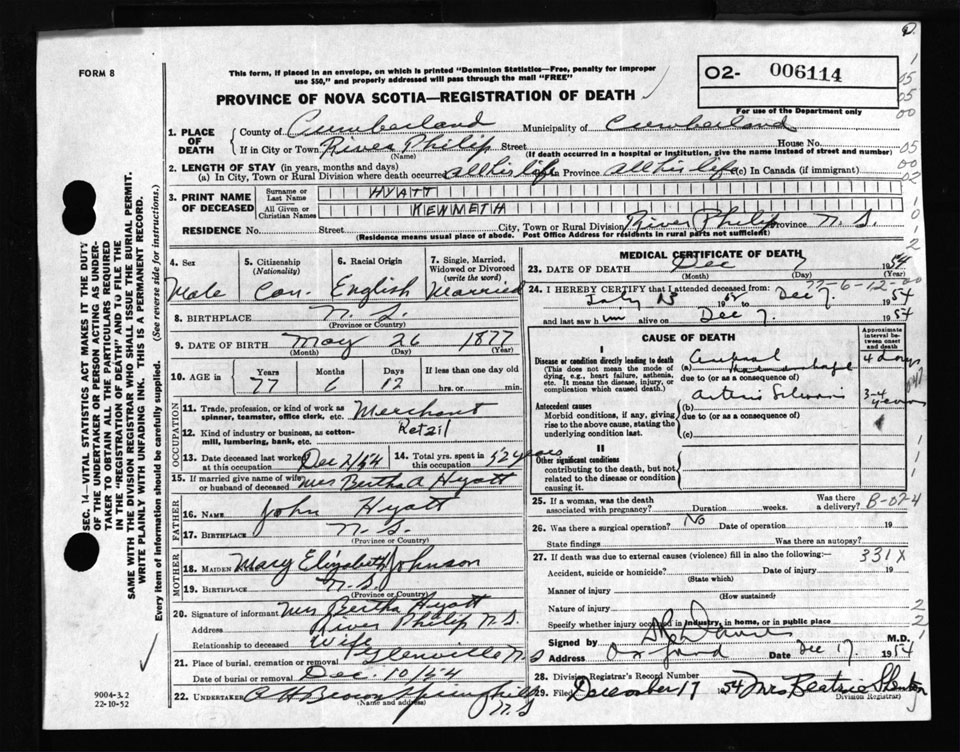 FORM 8
This form, if placed in an envelope, on which is printed "Dominion Statistics—Free, penalty for improper
use $50," and properly addressed will pass through the mail "FREE"
02- 006114
For use of the Department only
PROVINCE OF NOVA SCOTIA—REGISTRATION OF DEATH
1. PLACE OF DEATH
County of Cumberland Municipality of Cumberland
If in City or Town River Philip Street House No.
(Name) (If death occurred in a hospital or institution, give the name instead of street and number)
2. LENGTH OF STAY (in years, months and days)
(a) In City, Town or Rural Division where death occurred all his life (b) in Province all his life (c) In Canada (if immigrant)
3. PRINT NAME OF DECEASED
Surname or Last Name HYATT
All Given or Christian Names KENNETH
RESIDENCE No. Street City, Town or Rural Division River Philip Province N.S.
(Residence means usual place of abode. Post Office Address for residents in rural parts not sufficient)
4. Sex Male
5. Citizenship (Nationality) Can.
6. Racial Origin English
7. Single, Married, Widowed or Divorced (write the word) Married
8. BIRTHPLACE N.S.
(Province or Country)
9. DATE OF BIRTH May 26 1877
(Month) (Day) (Year)
10. AGE in Years 77 Months 6 Days 12 If less than one day old hrs. or min.
OCCUPATION
11. Trade, profession, or kind of work as spinner, teamster, office clerk, etc. Merchant
12. Kind of industry or business, as cotton-mill, lumbering, bank, etc. Retail
13. Date deceased last worked at this occupation Dec 2/54
14. Total yrs. spent in this occupation 52 years
15. If married give name of wife or husband of deceased Mrs Bertha A Hyatt
FATHER
16. Name John Hyatt
17. Birthplace N.S.
(Province or Country)
MOTHER
18. MAIDEN NAME Mary Elizabeth Johnson
19. BIRTHPLACE N.S.
(Province or Country)
20. Signature of informant Mrs Bertha Hyatt
Address River Philip N.S.
Relationship to deceased Wife
21. Place of burial, cremation or removal Glenville N S
Date of burial or removal Dec. 10/54
22. UNDERTAKER A H Brown Springhill N.S
(Name and address)
MEDICAL CERTIFICATE OF DEATH
23. DATE OF DEATH Dec 7 1954
(Month) (Day)
77-6-12-00
24. I HEREBY CERTIFY that I attended deceased from:
July 19 Dec 7. 1954
and last saw him alive on Dec 7. 1954
CAUSE OF DEATH
Approximate interval between onset and death
I
Disease or condition directly leading to death
(This does not mean the mode of dying, e.g., heart failure, asthenia, etc. It means the disease, injury, or complication which caused death.)
(a) Cerebral 4 days
due to (or as a consequence of)
Antecedent causes
Morbid conditions, if any, giving rise to the above cause, stating the underlying condition last.
(b) 3-4 years
due to (or as a consequence of)
(c)
II
Other significant conditions
contributing to the death, but not related to the disease or condition causing it.
25. If a woman, was the death associated with pregnancy? Duration weeks. Was there a delivery? B-07-4
26. Was there a surgical operation? No Date of operation 19
State findings Was there an autopsy?
27. If death was due to external causes (violence) fill in also the following:— 331X
Accident, suicide or homicide? Date of injury 19
(State which)
Manner of injury
(How sustained)
Nature of injury
Specify whether injury occurred in industry, in home, or in public place
Signed by M.D.
Address Oxford Date Dec 17. 1954
28. Division Registrar's Record Number
29. Filed December 17 1954 Mrs Beatrice
Division Registrar
SEC. 14—VITAL STATISTICS ACT MAKES IT THE DUTY
OF THE UNDERTAKER OR PERSON ACTING AS UNDER-
TAKER TO OBTAIN ALL THE PARTICULARS REQUIRED
IN THE "REGISTRATION OF DEATH" AND TO FILE THE
SAME WITH THE DIVISION REGISTRAR WHO SHALL ISSUE THE BURIAL PERMIT.
WRITE PLAINLY WITH UNFADING INK. THIS IS A PERMANENT RECORD.
Every item of information should be carefully supplied. (See reverse side for instructions.)
9004-3.2
22-10-52